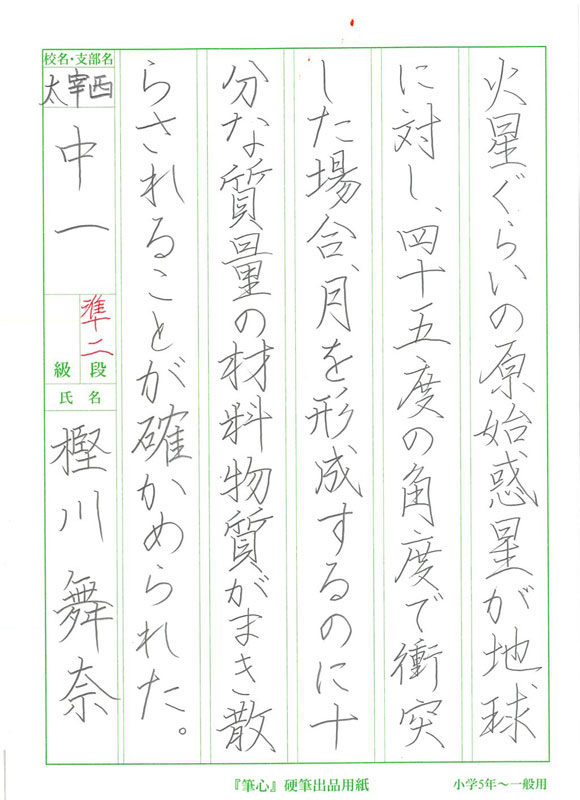 火星ぐらいの原始惑星が地球
に対し、四十五度の角度で衝突
した場合、月を形成するのに十
分な質量の材料物質がまき散
らされることが確かめられた。
校名・支部名
太宰西
中一
準二
段
級
氏名
樫川舞奈
『筆心』硬筆出品用紙
小学5年〜一般用